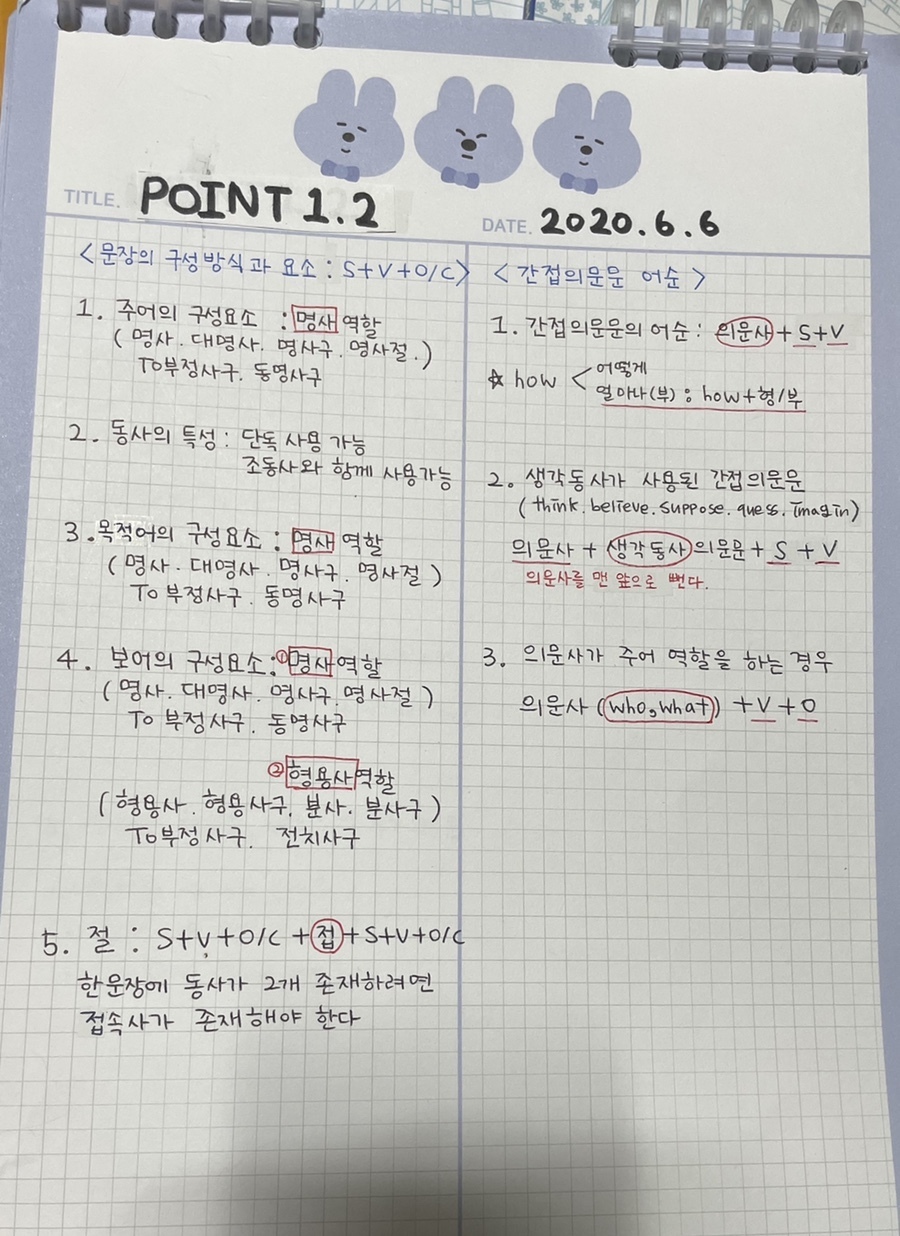 TITLE. POINT 1.2
DATE. 2020.6.6
<문장의 구성방식과 요소 : S+V+O/C>
1. 주어의 구성요소 : 명사 역할
(명사. 대명사. 명사구. 명사절.)
To부정사구. 동명사구
2. 동사의 특성 : 단독 사용 가능
조동사와 함께 사용가능
3. 목적어의 구성요소 : 명사 역할
(명사. 대명사. 명사구. 명사절)
To 부정사구. 동명사구
4. 보어의 구성요소: ①명사 역할
(명사. 대명사. 명사구. 명사절)
To 부정사구. 동명사구
②형용사역할
(형용사. 형용사구. 분사. 분사구)
To부정사구. 전치사구
5. 절 : S+V+O/C +접+S+V+O/C
한문장에 동사가 2개 존재하려면
접속사가 존재해야 한다
<간접의문문 어순>
1. 간접의문문의 어순 : 의문사+S+V
☆ how < 어떻게
얼마나(부) : how+형/부
2. 생각동사가 사용된 간접의문문
(think. believe. suppose. quess. imagin)
의문사 + 생각동사 의문문 + S + V
의문사를 맨 앞으로 뺀다.
3. 의문사가 주어 역할을 하는 경우
의문사 (who, what) + V + O